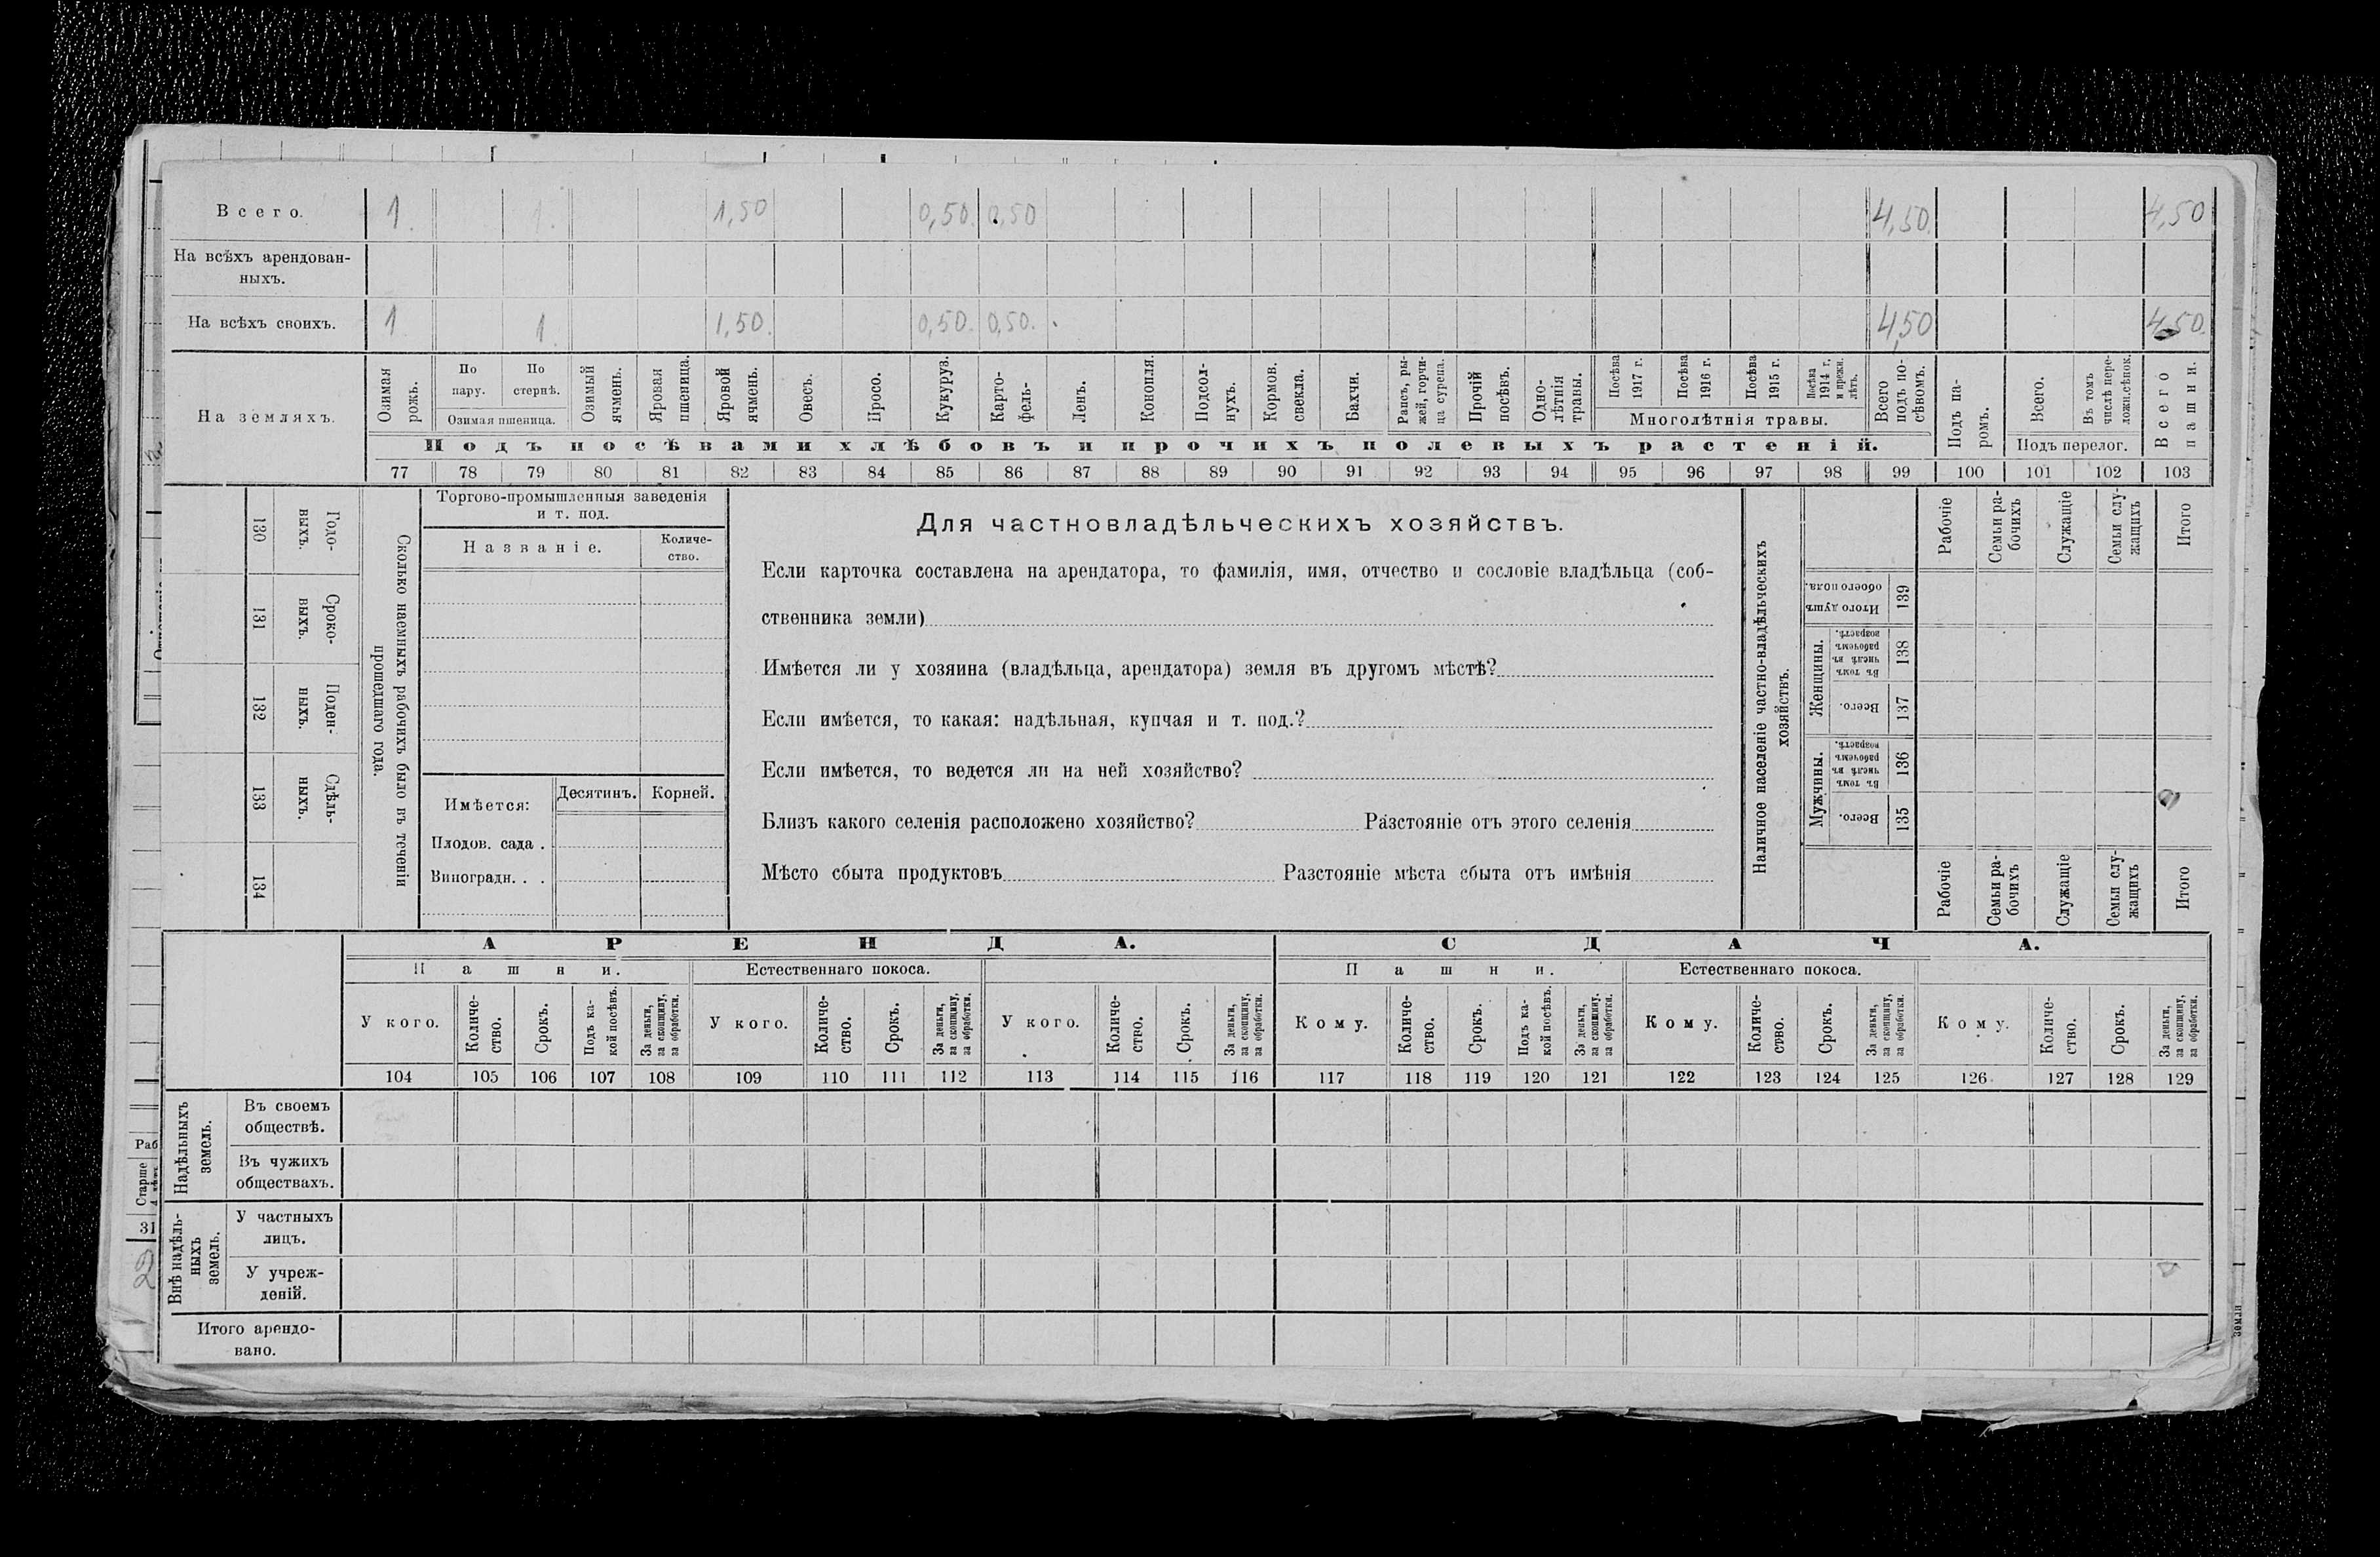 Всего. 1. 1. 1,50 0,50. 0,50 4,50. 4,50
На всѣхъ арендован-
ныхъ.
На всѣхъ своихъ. 1 1 1,50. 0,50. 0,50. 4,50 4,50.
На земляхъ.
Озимая рожь.
По пару.
По стернѣ.
Озимая пшеница.
Озимый ячмень.
Яровая пшеница.
Яровой ячмень.
Овесъ.
Просо.
Кукуруз.
Карто-
фель-
Ленъ.
Конопля.
Подсол-
нухъ.
Кормов.
свекла.
Бахчи.
Рапсъ, ры-
жей, горчи-
ца сурепа.
Прочій
посѣвъ.
Одно-
лѣтнія
травы.
Посѣва
1917 г.
Посѣва
1916 г.
Посѣва
1915 г.
Посѣва
1914 г.
и прежн.
лѣтъ.
Многолѣтнія травы.
Всего
подъ по-
сѣвомъ.
Подъ па-
ромъ.
Всего.
Въ томъ
числѣ пере-
ложн.сѣнок.
Подъ перелог.
Всего
пашни.
Подъ посѣвами хлѣбовъ и прочихъ полевыхъ растеній.
77 78 79 80 81 82 83 84 85 86 87 88 89 90 91 92 93 94 95 96 97 98 99 100 101 102 103
Годо-
выхъ.
130
Сроко-
выхъ.
131
Поден-
ныхъ.
132
Сдѣль-
ныхъ.
133
134
Сколько наемныхъ рабочихъ было въ теченіи
прошедшаго года.
Торгово-промышленныя заведенія
и т. под.
Названіе.
Количе-
ство.
Имѣется:
Десятинъ.
Корней.
Плодов. сада .
Виноградн. . .
Для частновладѣльческихъ хозяйствъ.
Если карточка составлена на арендатора, то фамилія, имя, отчество и сословіе владѣльца (соб-
ственника земли)
Имѣется ли у хозяина (владѣльца, арендатора) земля въ другомъ мѣстѣ?
Если имѣется, то какая: надѣльная, купчая и т. под.?
Если имѣется, то ведется ли на ней хозяйство?
Близъ какого селенія расположено хозяйство? Разстояніе отъ этого селенія
Мѣсто сбыта продуктовъ Разстояніе мѣста сбыта отъ имѣнія
Наличное населеніе частно-владѣльческихъ
хозяйствъ.
Рабочіе
Семьи ра-
бочихъ
Служащіе
Семьи слу-
жащихъ
Итого
Итого душъ
обоего пола.
139
Женщины.
Въ томъ
числѣ въ
рабочемъ
возрастѣ.
138
Всего.
137
Мужчины.
Въ томъ
числѣ въ
рабочемъ
возрастѣ.
136
Всего.
135
Рабочіе
Семьи ра-
бочихъ
Служащіе
Семьи слу-
жащихъ
Итого
АРЕНДА. СДАЧА.
Пашни. Естественнаго покоса. Пашни. Естественнаго покоса.
У кого.
Количе-
ство.
Срокъ.
Подъ ка-
кой посѣвъ.
За деньги,
за скопщину,
за обработки.
У кого.
Количе-
ство.
Срокъ.
За деньги,
за скопщину,
за обработки.
У кого.
Количе-
ство.
Срокъ.
За деньги,
за скопщину,
за обработки.
Кому.
Количе-
ство.
Срокъ.
Подъ ка-
кой посѣвъ.
За деньги,
за скопщину.
за обработки.
Кому.
Количе-
ство.
Срокъ.
За деньги,
за скопщину,
за обработки.
Кому.
Количе-
ство.
Срокъ.
За деньги,
за скопщину,
за обработки.
104 105 106 107 108 109 110 111 112 113 114 115 116 117 118 119 120 121 122 123 124 125 126 127 128 129
Надѣльныхъ
земель.
Въ своемъ
обществѣ.
Въ чужихъ
обществахъ.
Внѣ надѣль-
ныхъ
земель.
У частныхъ
лицъ.
У учреж-
деній.
Итого арендо-
вано.
Раб
Старше
31
2
земли